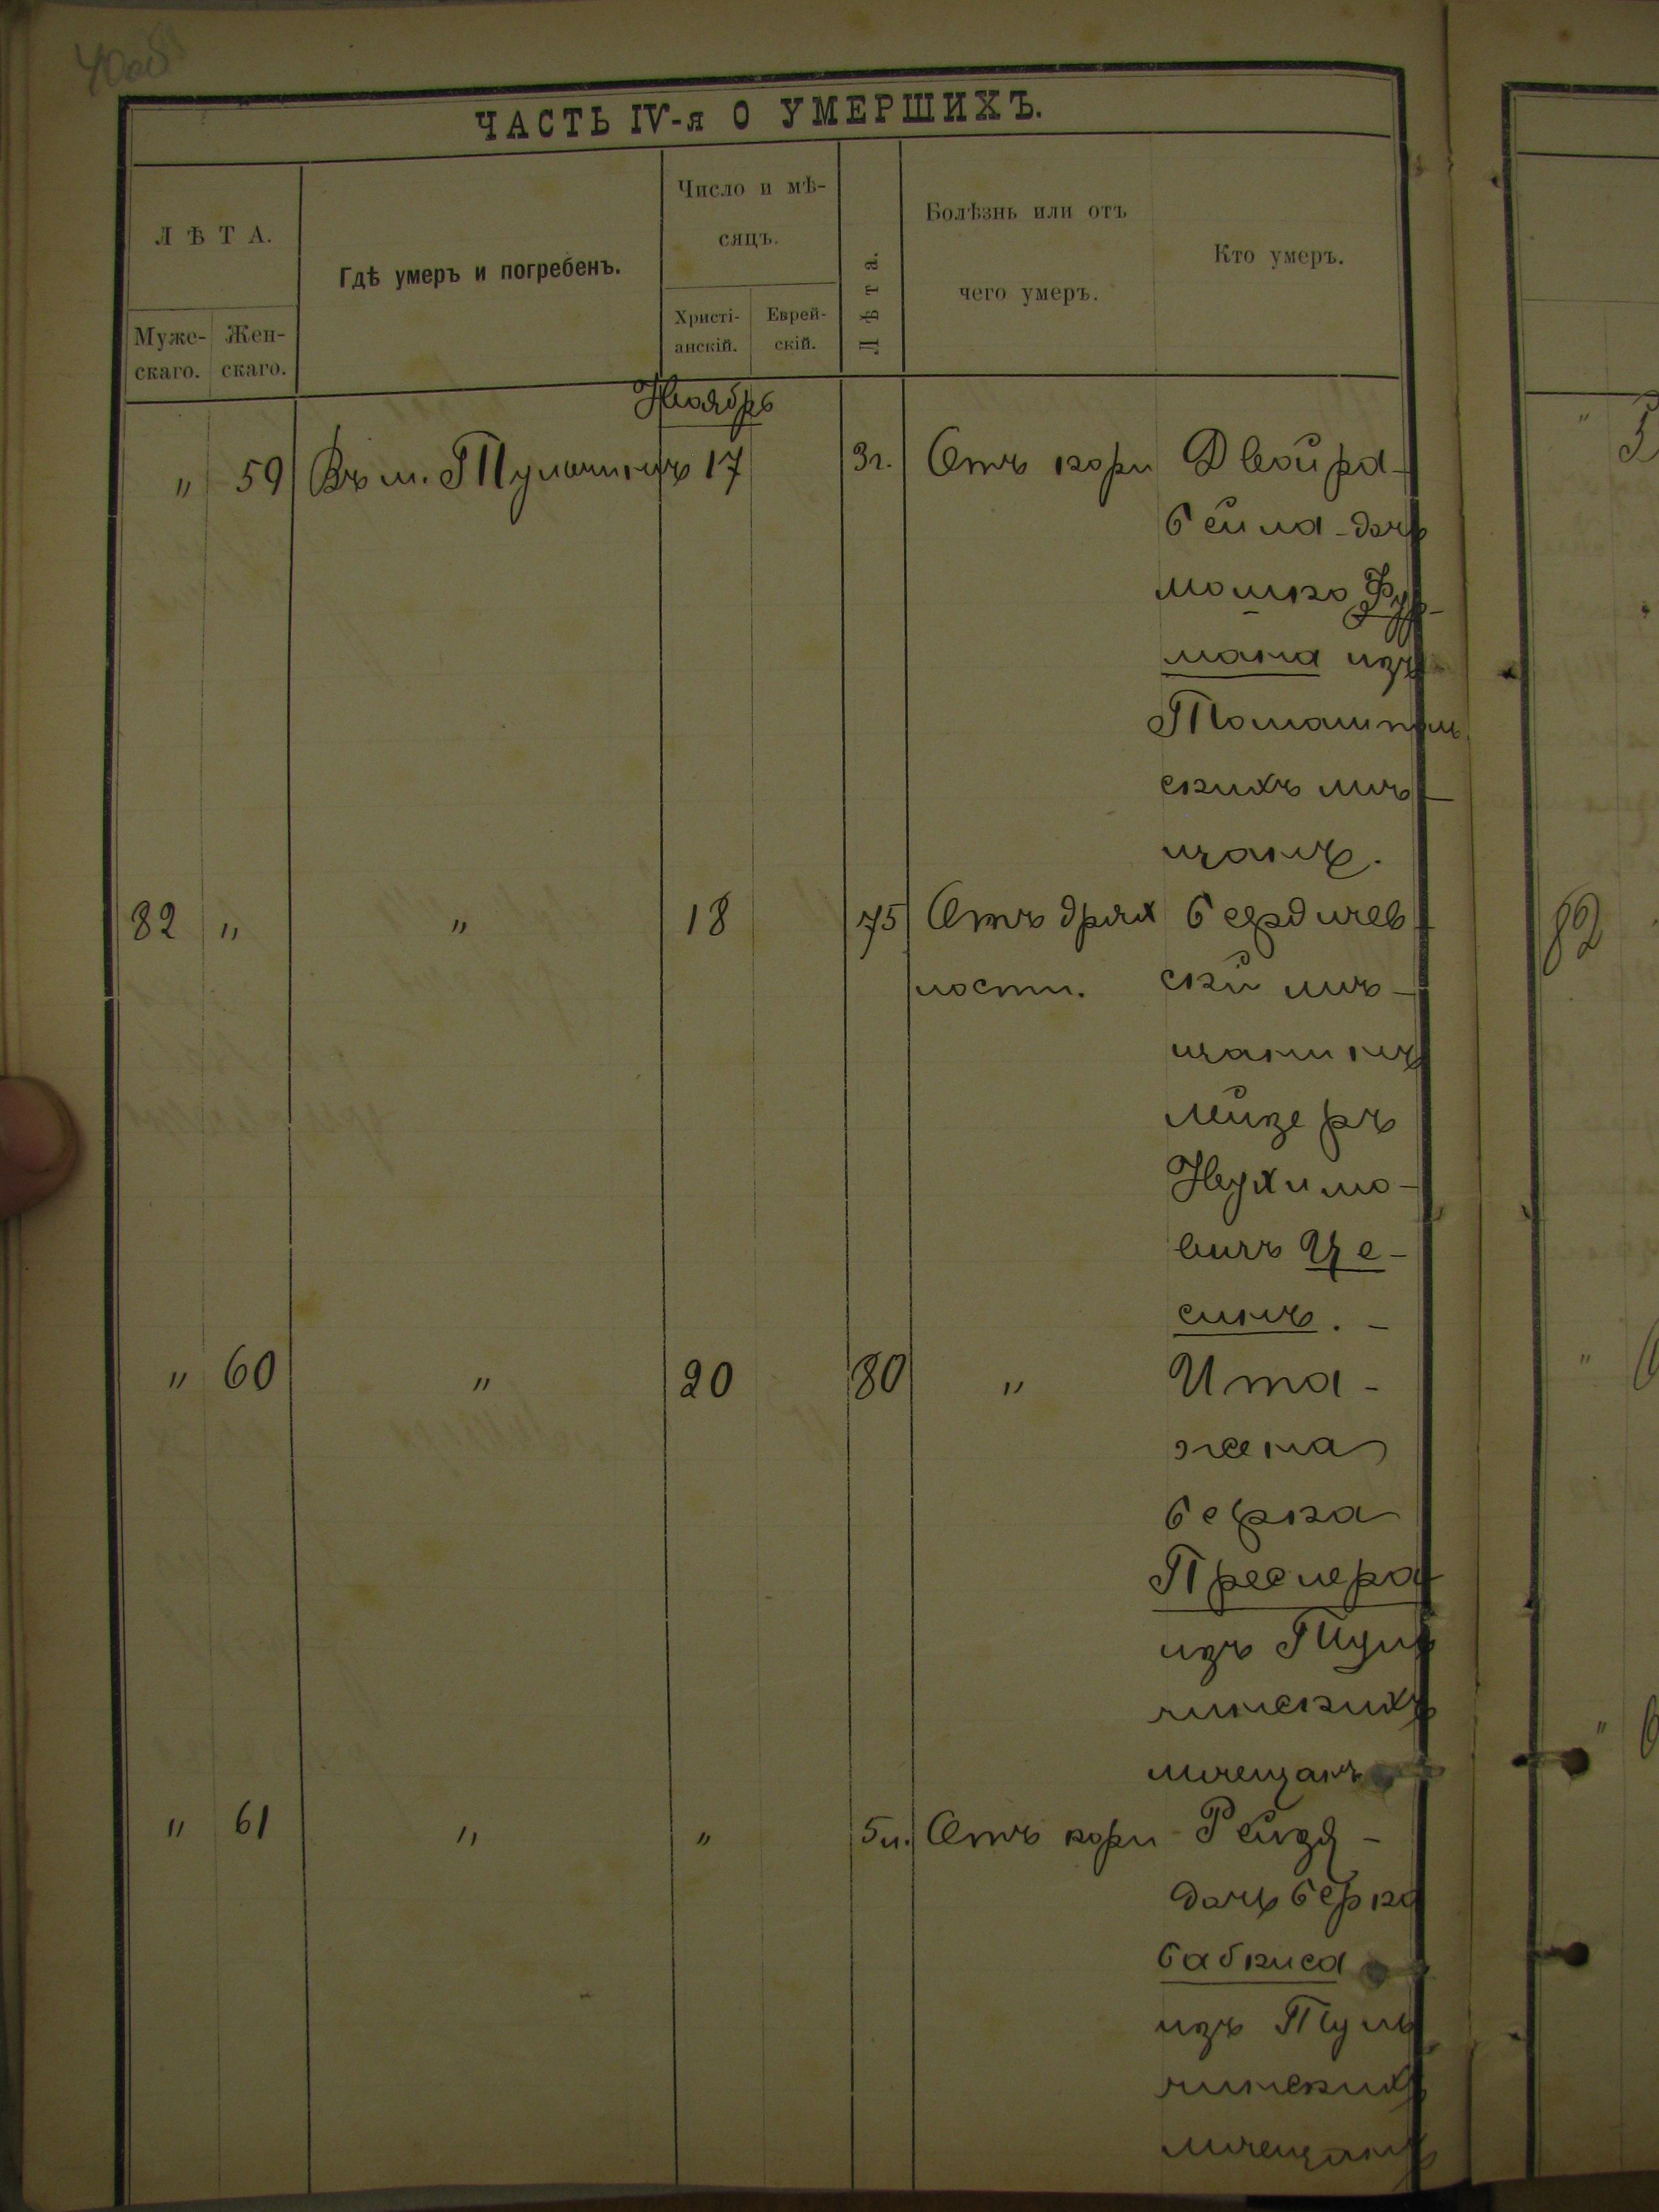 40об
ЧАСТЬ IV-я О УМЕРШИХЪ.
ЛѢТА.
Муже-
скаго.
Жен-
скаго.
Гдѣ умеръ и погребенъ.
Число и мѣ-
сяцъ.
Христі-
анскій.
Еврей-
скій.
Лѣта.
Болѣзнь или отъ
чего умеръ.
Кто умеръ.
Ноябрь
" 59 Въ м. Тульчинѣ 17 3г. Отъ кори Двойра-
Бейла-дочь
Мошко Фур-
мана изъ
Томашполь
скихъ мѣ-
щанъ.
82 " " 18 75 Отъ дрях Бердичев-
ности. скій мѣ-
щанинъ
Лейзеръ
Нухимо-
вичъ Це-
синъ. -
" 60 " 20 80 " Ита -
жена
Берка
Преслера
изъ Туль
чинскихъ
мѣщанъ
" 61 " " 5м. Отъ кори Рейзя -
дочь Берка
Бабкиса
изъ Туль
чинскихъ
мѣщанъ
82